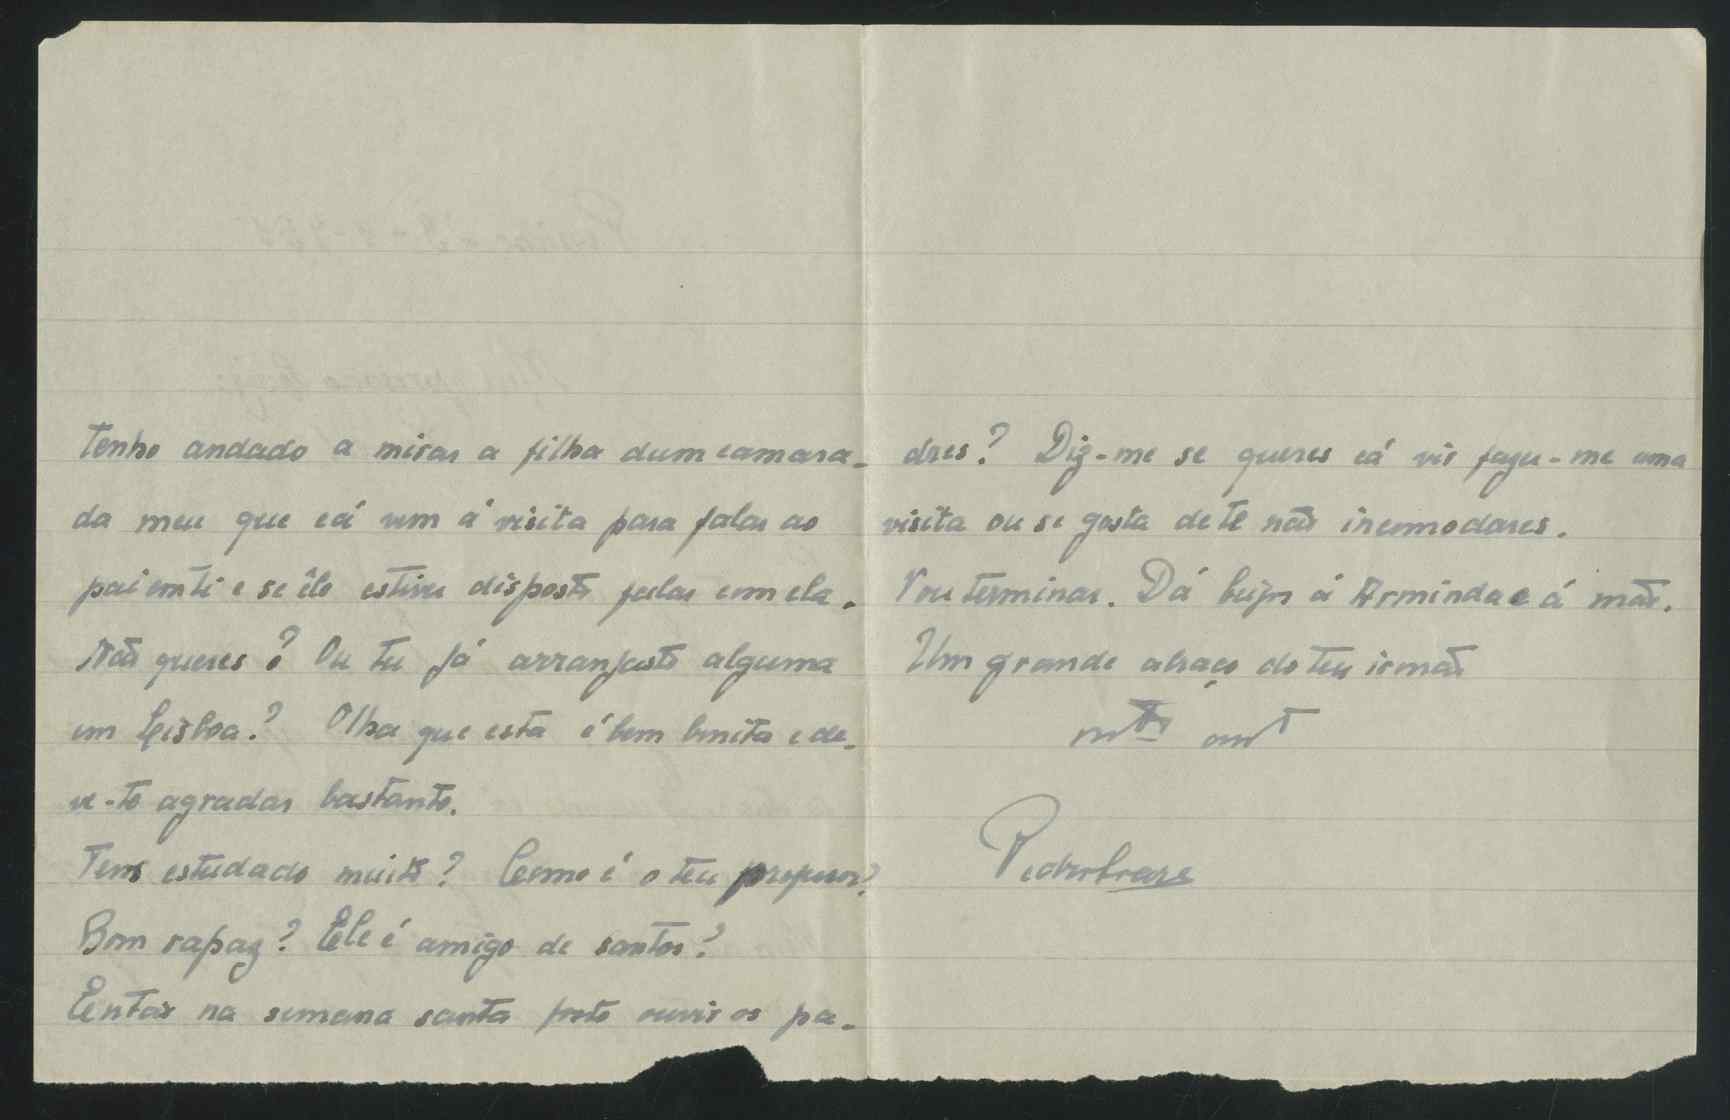 Tenho andado a mirar a filha dum camara-
da meu que cá vem á visita para falar ao
pai em ti e se êle estiver disposto falar com ela.
Não queres? Ou tu já arranjaste alguma
em Lisboa? Olha que esta é bem bonita e de-
ve-te agradar bastante.
Tens estudado muito? Como é o teu professor?
Bom rapaz? Ele é amigo de santos?
Então na semana santa foste ouvir os pa-
dres? Diz-me se queres cá vir fazer-me uma
visita ou se gosta de te não incomodares.
Vou terminar. Dá beijos á Arminda e á mãe.
Um grande abraço do teu irmão
mto amº
Pedro Soares